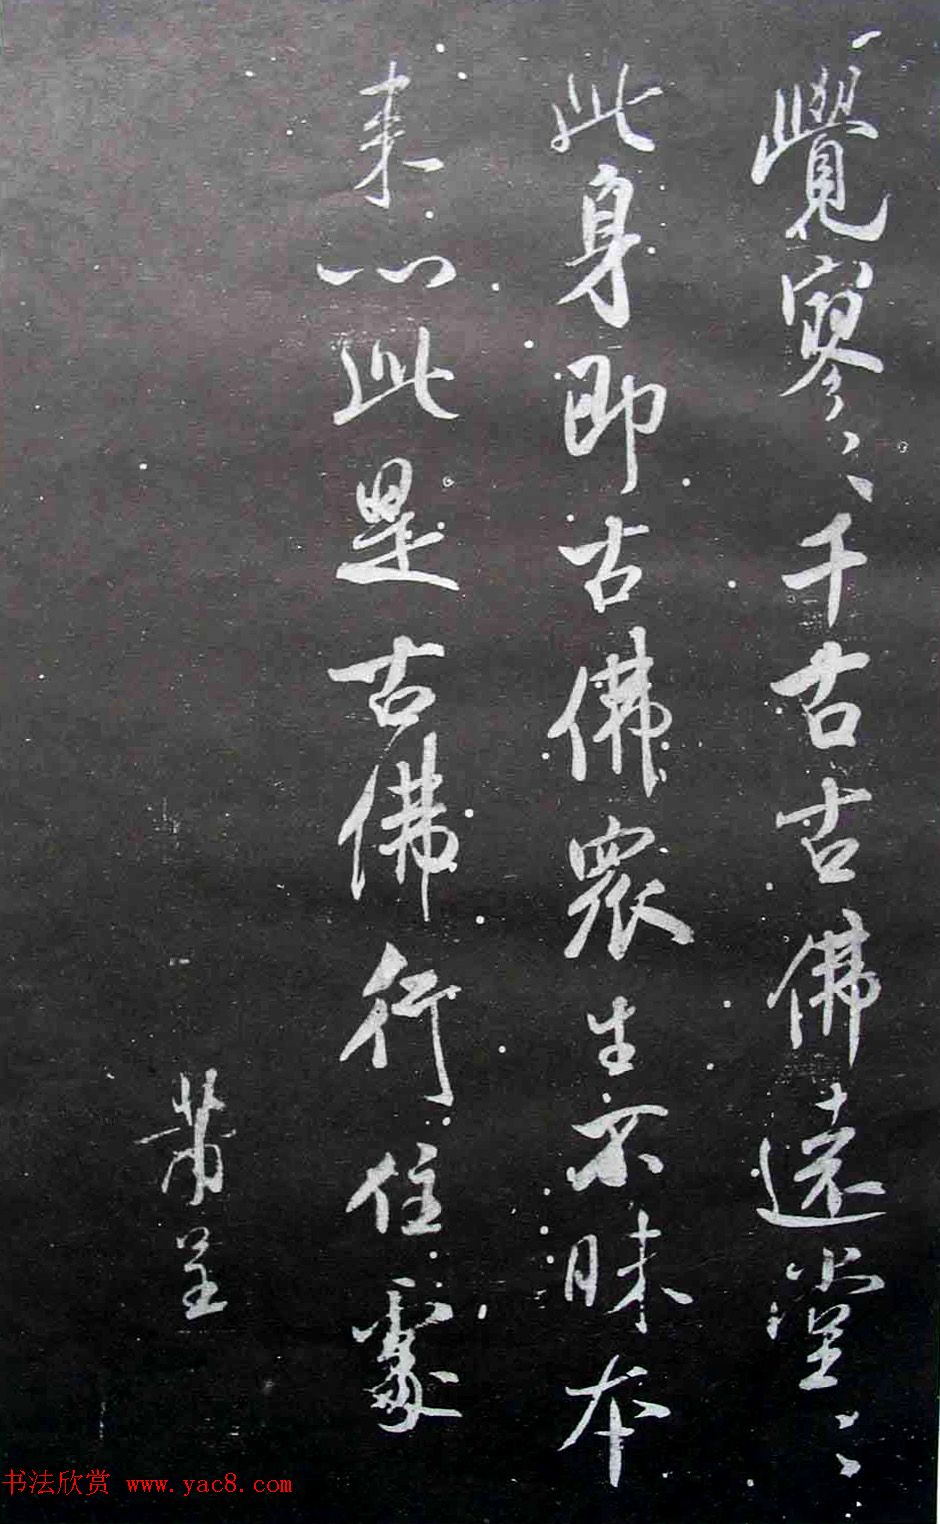 覺寥〻千古古佛遠堂〻
此身即古佛衆生不昧本
来心此是古佛行住處
芾呈
书法欣赏 www.yac8.com